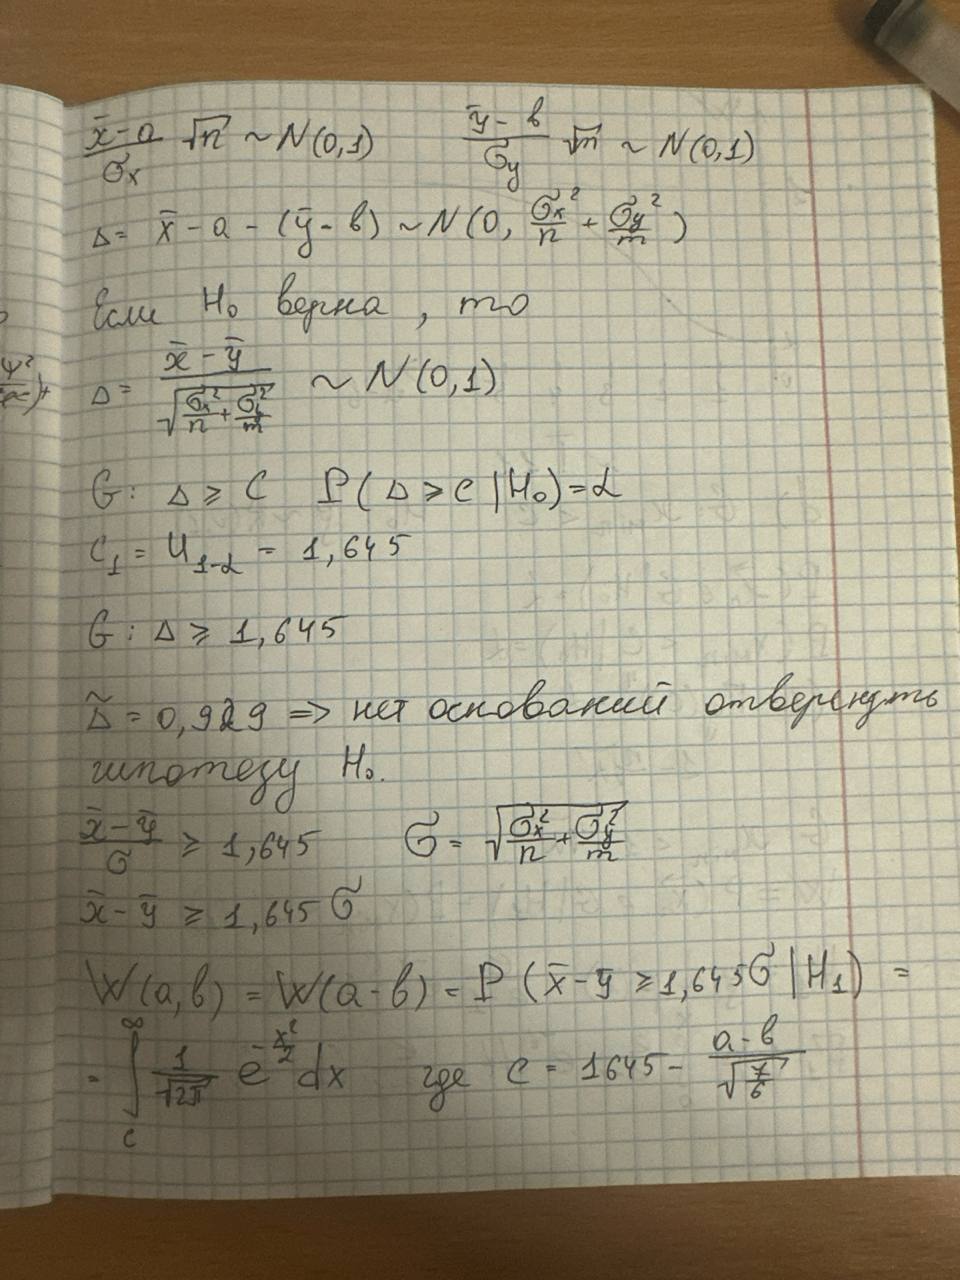 (x̄ - a)/σₓ √n ~ N(0,1)   (ȳ - b)/σ_y √n ~ N(0,1)
Δ = x̄ - a - (ȳ - b) ~ N(0, σₓ²/n + σ_y²/m)
Если H₀ верна, то
Δ = (x̄ - ȳ)/√(σₓ²/n + σ_y²/m) ~ N(0,1)
G: Δ ⩾ C   P(Δ ⩾ C | H₀) = α
C₁ = U₁₋α = 1,645
G: Δ ⩾ 1,645
Δ̃ = 0,929 => нет оснований отвергнуть
гипотезу H₀.
(x̄ - ȳ)/σ ⩾ 1,645   σ = √(σₓ²/n + σ_y²/m)
x̄ - ȳ ⩾ 1,645 σ
W(a,b) = W(a-b) = P(x̄ - ȳ ⩾ 1,645σ | H₁) =
= ∫_c^∞ 1/√2π e^(-x²/2) dx   где c = 1645 - (a-b)/√(7/6)